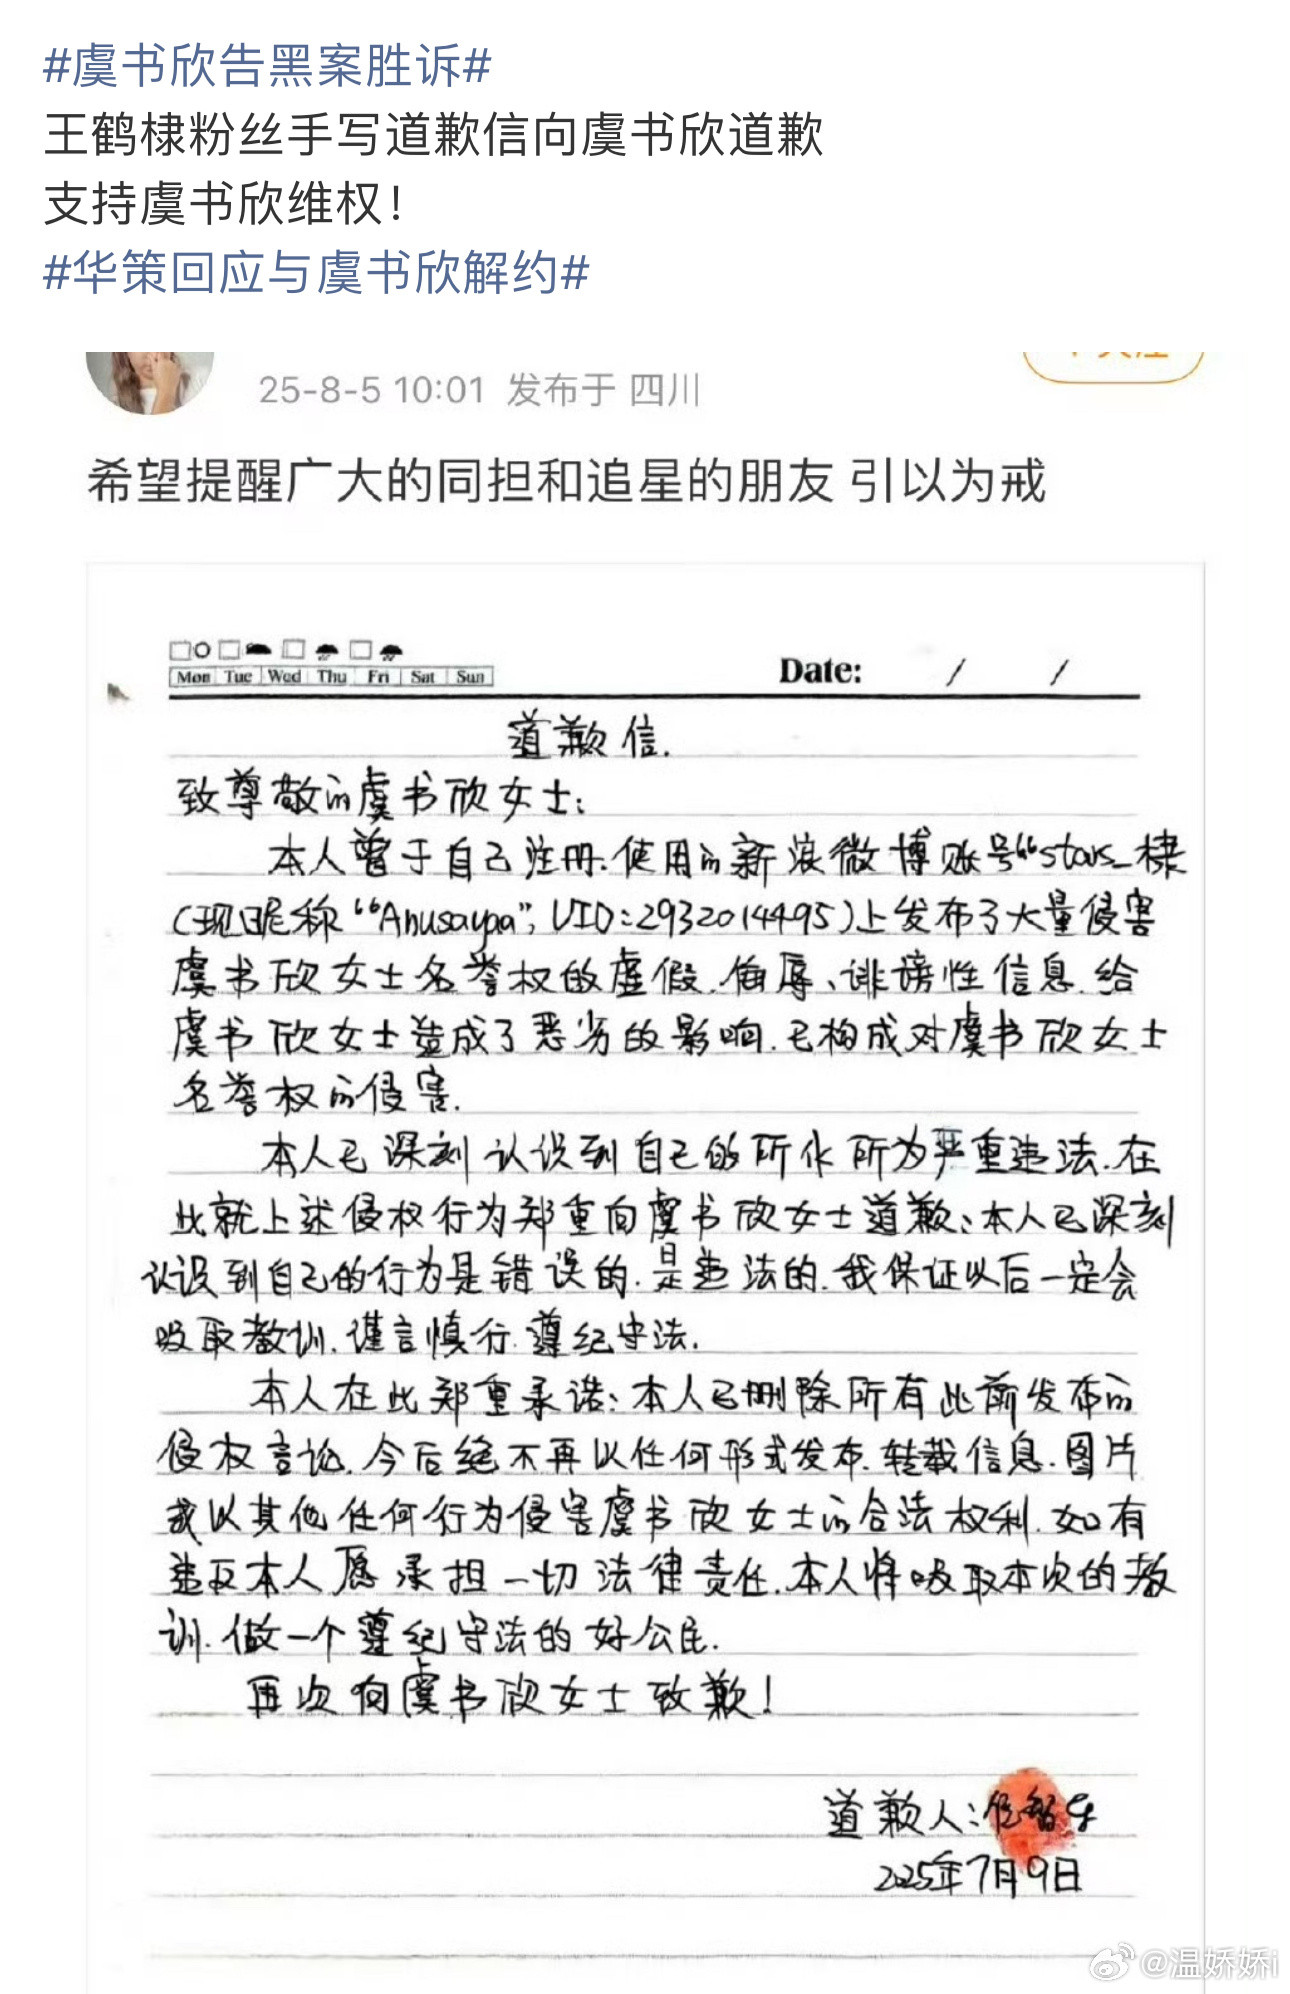 #虞书欣告黑案胜诉#
王鹤棣粉丝手写道歉信向虞书欣道歉
支持虞书欣维权！
#华策回应与虞书欣解约#
25-8-5 10:01 发布于 四川
希望提醒广大的同担和追星的朋友 引以为戒
Mon Tue Wed Thu Fri Sat Sun
Date: / /
道歉信.
致尊敬的虞书欣女士:
本人曾于自己注册.使用的新浪微博账号“stars_棣
(现昵称“Anusaypa”, UID:2932014495)上发布了大量侵害
虞书欣女士名誉权的虚假.侮辱、诽谤性信息.给
虞书欣女士造成了恶劣的影响.已构成对虞书欣女士
名誉权的侵害.
本人已深刻认识到自己的所作所为严重违法.在
此就上述侵权行为郑重向虞书欣女士道歉:本人已深刻
认识到自己的行为是错误的.是违法的.我保证以后一定会
吸取教训.谨言慎行.遵纪守法.
本人在此郑重承诺:本人已删除所有此前发布的
侵权言论.今后绝不再以任何形式发布.转载信息.图片
或以其他任何行为侵害虞书欣女士的合法权利.如有
违反本人愿承担一切法律责任.本人将吸取本次的教
训.做一个遵纪守法的好公民.
再次向虞书欣女士致歉!
道歉人:
2025年7月9日
@温娇娇i